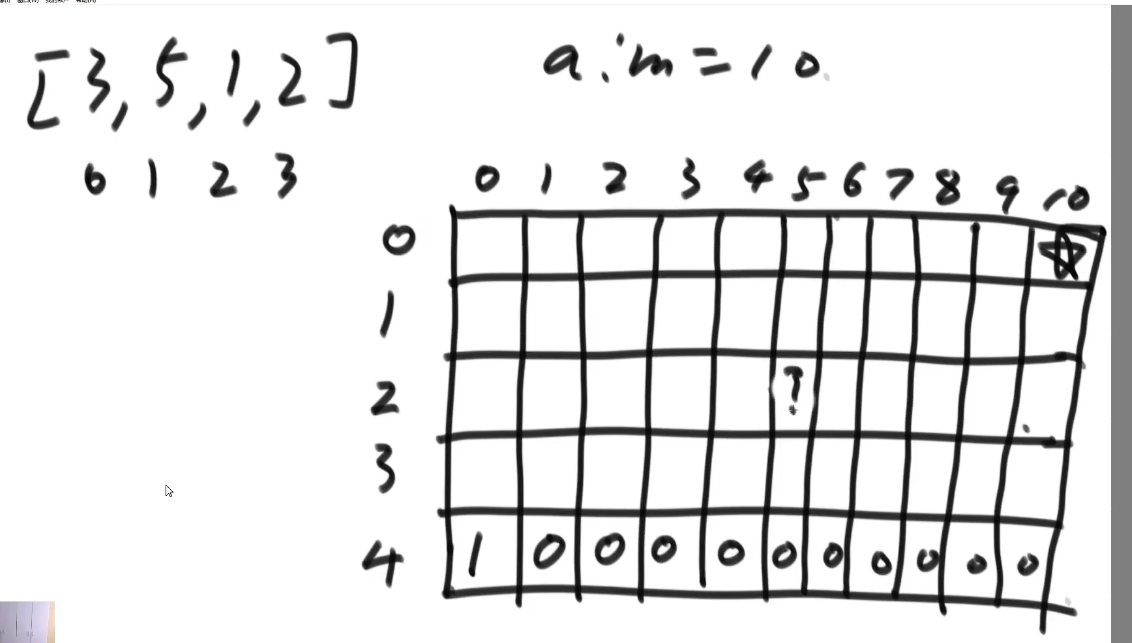 [3,5,1,2]
aim=10
0 1 2 3
0 1 2 3 4 5 6 7 8 9 10
0
1
2 ?
3
4 1 0 0 0 0 0 0 0 0 0 0